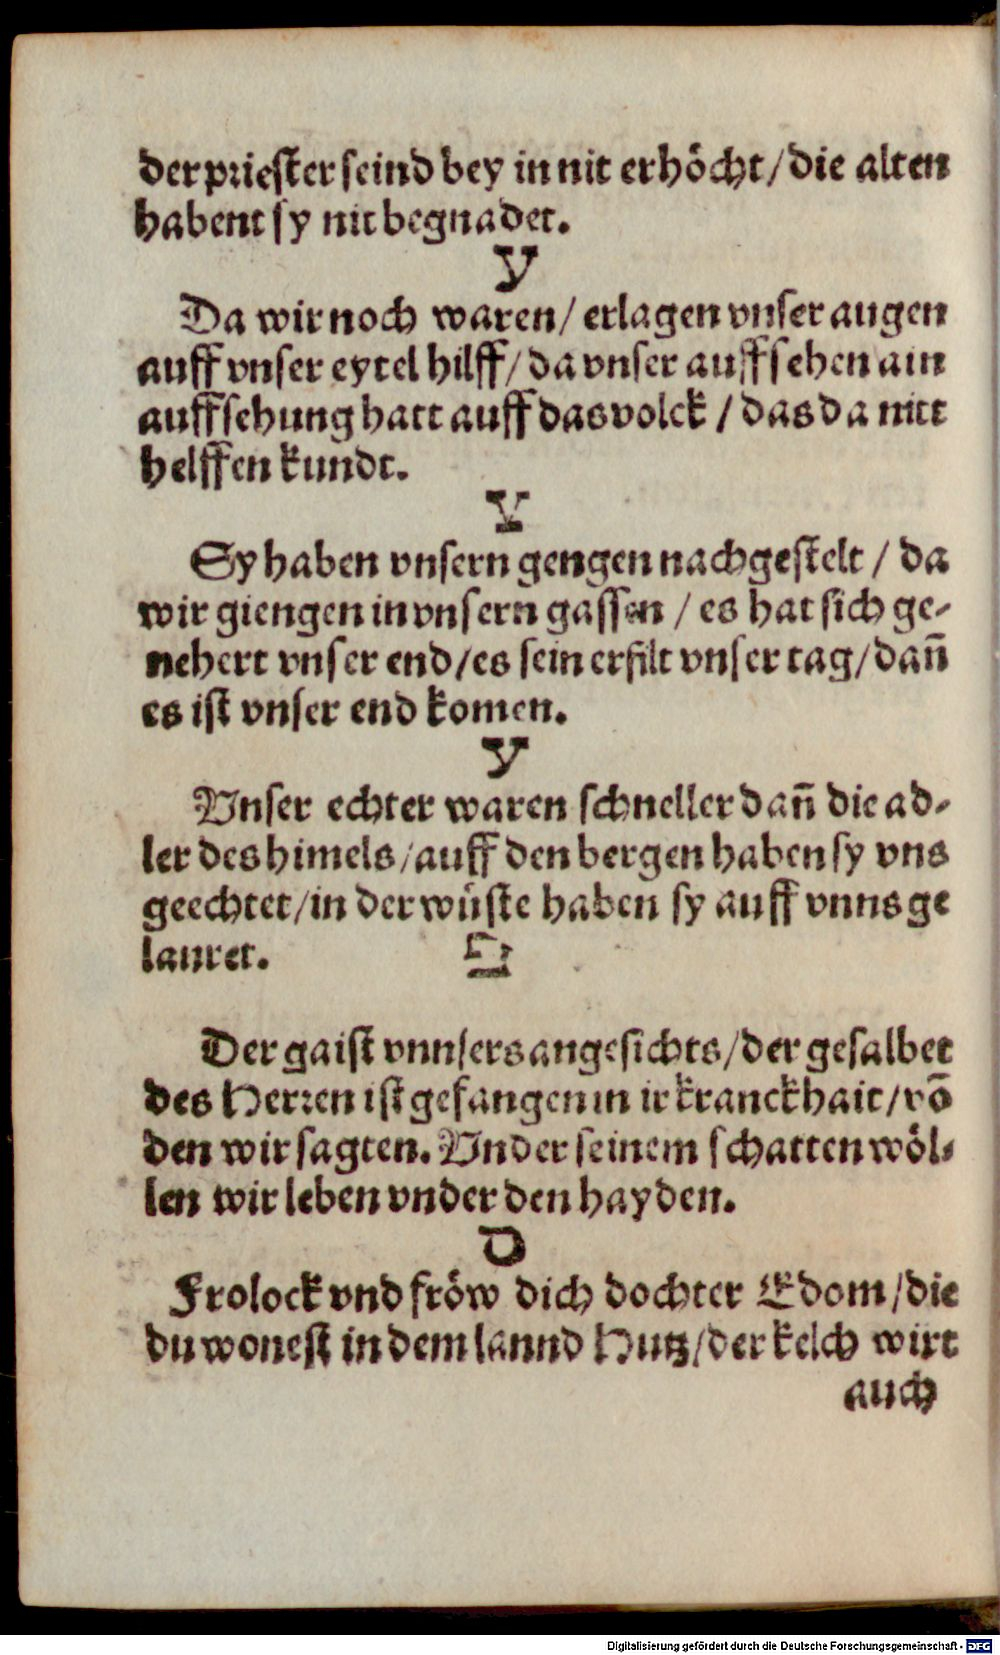 der priester seind bey in nit erhöcht / die alten
habent sy nit begnadet.
ע
Da wir noch waren / erlagen vnser augen
auff vnser eytel hilff / da vnser auffsehen ain
auffsehung hatt auff das volck / das da nitt
helffen kundt.
צ
Sy haben vnsern gengen nachgestelt / da
wir giengen in vnsern gassen / es hat sich ge-
nehert vnser end / es sein erfilt vnser tag / dañ
es ist vnser end komen.
ק
Vnser echter waren schneller dañ die ad-
ler des himels / auff den bergen haben sy vns
geechtet / in der wüste haben sy auff vnns ge
lauret.
Der gaist vnnsers angesichts / der gesalbet
des Herren ist gefangen in ir kranckhait / võ
den wir sagten. Vnder seinem schatten wöl-
len wir leben vnder den hayden.
Frolock vnd fröw dich dochter Edom / die
du wonest in dem lannd Hutz / der kelch wirt
auch
Digitalisierung gefördert durch die Deutsche Forschungsgemeinschaft - DFG